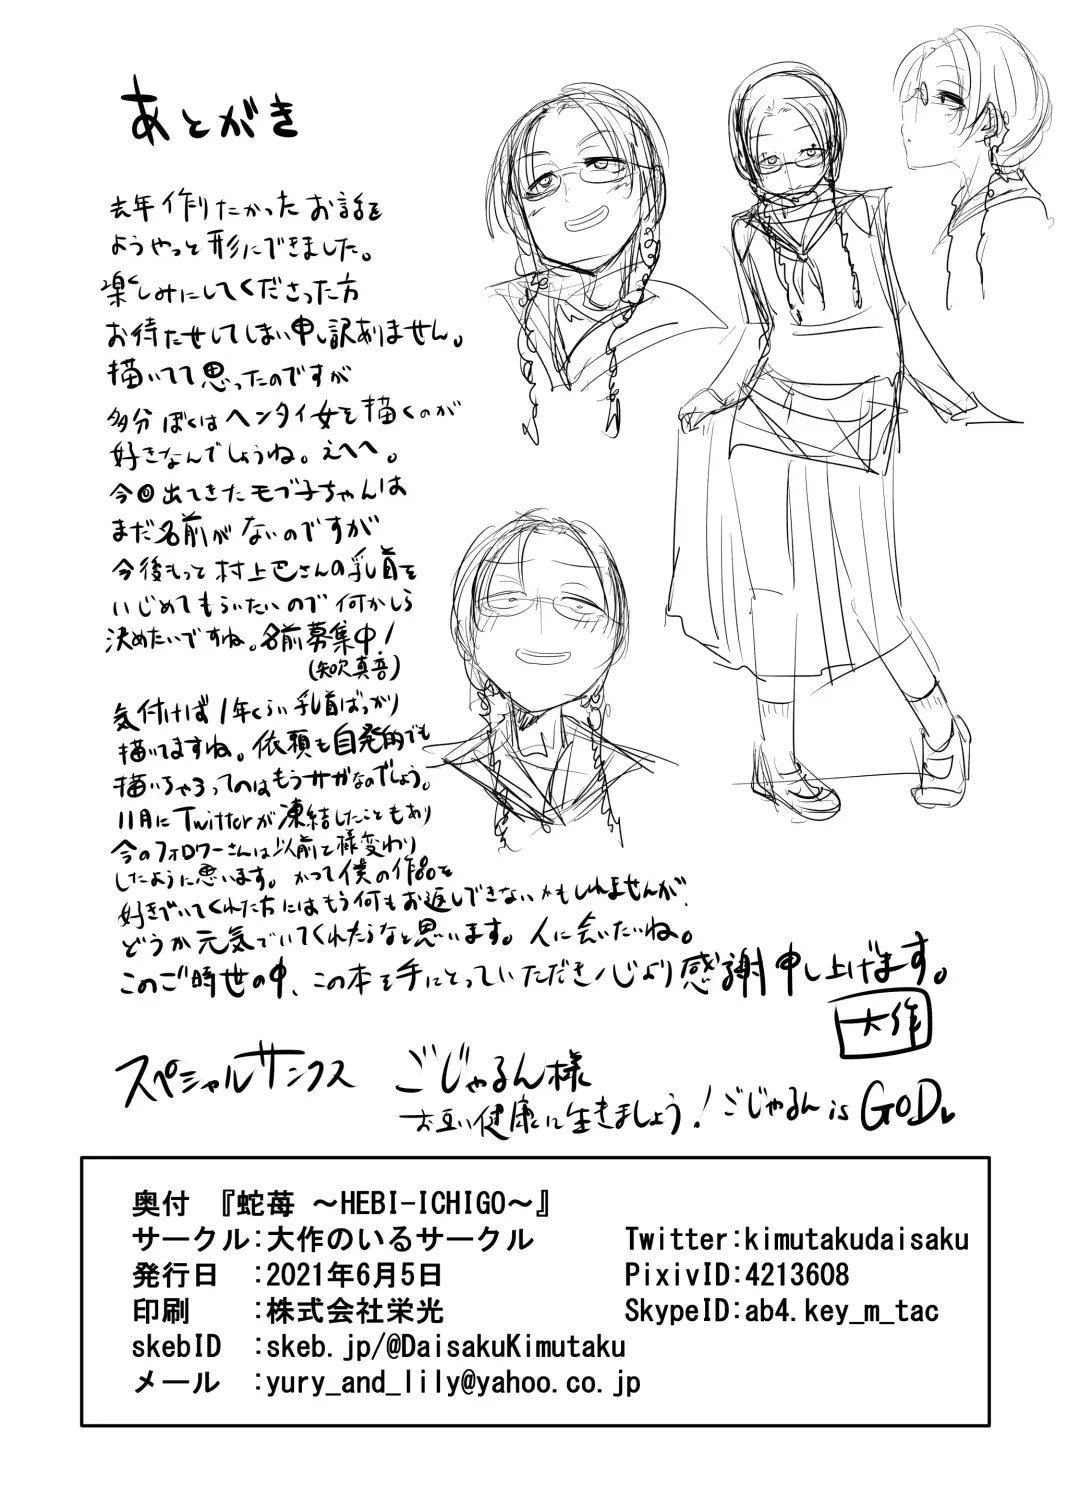 あとがき
去年作りたかったお話を
ようやっと形にできました。
楽しみにしてくださった方
お待たせしてしまい申し訳ありません。
描いてて思ったのですが
多分ぼくはヘンタイ女を描くのが
好きなんでしょうね。えへへ。
今回出てきたモブ子ちゃんは
まだ名前がないのですが
今後もっと村上巴さんの乳首を
いじめてもらいたいので何かしら
決めたいですね。名前募集中!
(矢吹真吾)
気付けば1年くらい乳首ばっかり
描いてますね。依頼も自発的でも
描いちゃろってのはもうサガなのでしょう。
11月にTwitterが凍結したこともあり
今のフォロワーさんは以前と様変わり
したように思います。かつて僕の作品を
好きでいてくれた方にはもう何もお返しできないかもしれませんが、
どうか元気でいてくれたらなと思います。人に会いたいね。
このご時世の中、この本を手にとっていただき心より感謝申し上げます。
大作
スペシャルサンクス ごじゃるん様
お互い健康に生きましょう! ごじゃるん is GOD♥
奥付 『蛇苺 ～HEBI-ICHIGO～』
サークル:大作のいるサークル Twitter:kimutakudaisaku
発行日 :2021年6月5日 PixivID:4213608
印刷 :株式会社栄光 SkypeID:ab4.key_m_tac
skebID :skeb.jp/@DaisakuKimutaku
メール :yury_and_lily@yahoo.co.jp